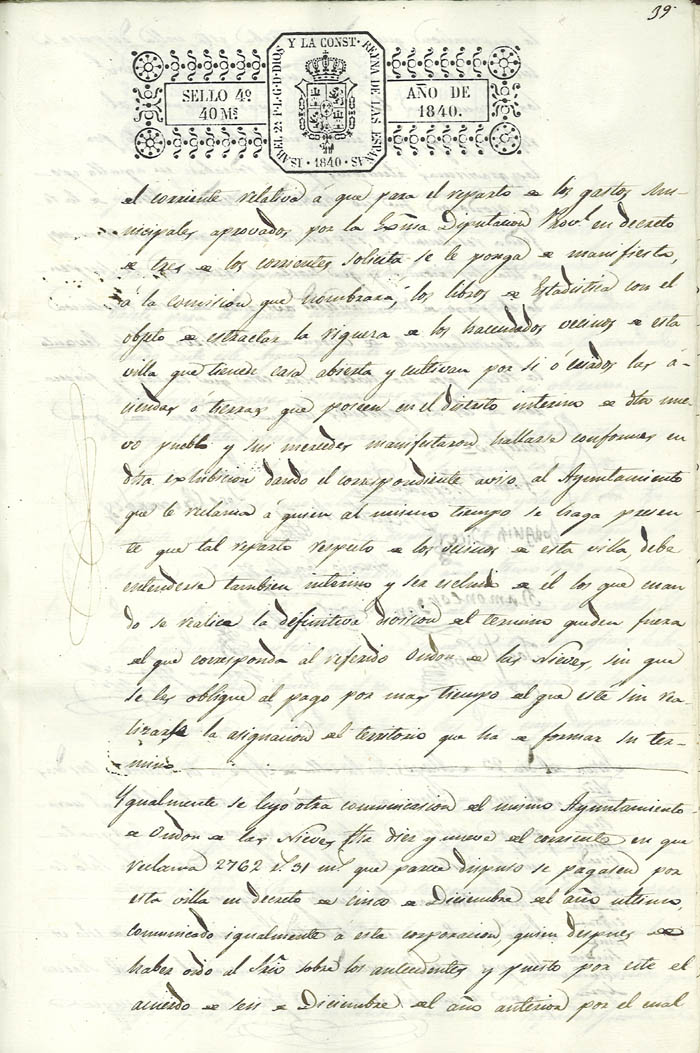 39
SELLO 4º
40 Ms
ISABEL 2ª P.L.G.D.DIOS Y LA CONST. REYNA DE LAS ESPAÑAS
· 1840 ·
AÑO DE
1840.
el corriente relativa á que para el reparto de los gastos mu-
nicipales aprovados por la Exma Diputacion Provl. en decreto
de tres de los corrientes solicita se le ponga de manifiesto,
á la comision que nombrará, los libros de Estadistica con el
objeto de estractar la riqueza de los hacendados vecinos de esta
villa que tienen casa abierta y cultivan por si ó criados las á-
ciendas ó tierras que poseen en el distrito interino de dho nue-
vo pueblo y sus mercedes manifestaron hallarse conformes en
dha exhibicion dando el correspondiente aviso al Ayuntamiento
que lo reclama á quien al mismo tiempo se haga presen
te que tal reparto respecto de los vecinos de esta villa debe
entenderse tambien interino y ser escluido de él los que cuan
do se realice la definitiva division del termino queden fuera
del que corresponda al referido Ondon de las Nieves, sin que
se les obligue al pago por mas tiempo del que esté sin rea-
lizarse la asignacion del territorio que ha de formar su ter-
mino
Ygualmente se leyó otra comunicacion del mismo Ayuntamiento
de Ondon de las Nieves fha diez y nueve del corriente en que
reclama 2762 rs. 31 ms. que parece dispuso se pagasen por
esta villa en decreto de cinco de Diciembre del año ultimo,
comunicado igualmente á esta corporacion, quien despues de
haber oido al Srio sobre los antecedentes y puesto por este el
acuerdo de seis de Diciembre del año anterior por el cual